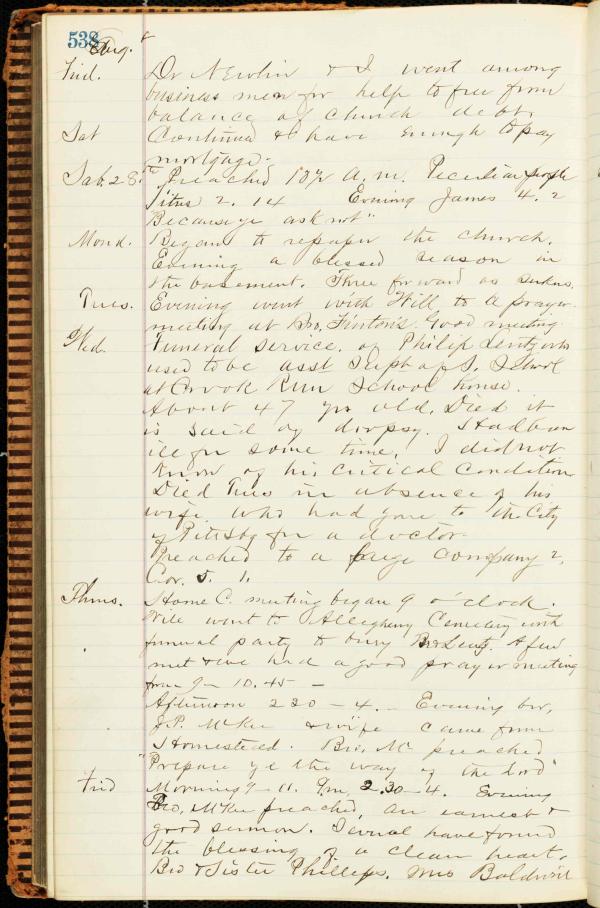 538 Aug.
Frid. Dr Newlin & I went among
business men for help to free from
balance of church debt.
Sat Continued & have enough to pay
mortgage.
Sab. 28th Preached 10½ A.m. Peculiar people
Titus 2. 14 Evening James 4. 2
Because ye ask not"
Mond. Began to repaper the church.
Evening a blessed season in
the basement. Three forward as seekers.
Tues. Evening went with Will to a prayer
meeting at Bro. Finton's. Good meeting.
Wed. Funeral service. of Philip Lentz who
used to be asst Supt of S. School
at Crook Run School house.
About 47 yrs old. Died it
is said of dropsy. Had been
ill for some time. I did not
know of his critical condition
Died Tues in absence of his
wife who had gone to the City
of Pittsbg for a doctor.
Preached to a large company 2,
Cor. 5. 1.
Thurs. Home C. meeting began 9 o'clock.
Will went to Allegheny Cemetery with
funeral party to bury Bro Lentz. A few
met & we had a good prayer meeting
from 9 - 10.45 -
Afternoon 2 30 - 4. - Evening bro,
J.P. McKee & wife came from
Homestead. Bro. Mc preached
"Prepare ye the way of the Lord"
Frid Morning 9 - 11. P.m, 2.30 - 4. Evening
Bro, McKee preached, an earnest &
good sermon. Several have found
the blessing of a clean heart,
Bro & Sister Phillips, Mrs Baldwin